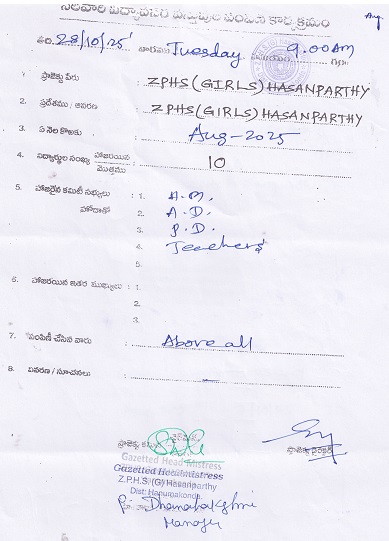 నెలవారి విద్యార్థిని విద్యార్థుల పంపిణి కార్యక్రమం
Aug
తేది. 28/10/25 వారము Tuesday సమయం 9.00AM గం॥
1. ప్రాజెక్టు పేరు : ZPHS (GIRLS) HASANPARTHY
2. ప్రదేశము / ఆవరణ : ZPHS (GIRLS) HASANPARTHY
3. ఏ నెల కొఱకు : Aug-2025
4. విద్యార్థుల సంఖ్య హాజరయిన / మొత్తము : 10
5. హాజరైన కమిటి సభ్యులు : 1. H.M.
హోదాతో 2. A.D.
3. P.D.
4. Teachers
6. హాజరయిన ఇతర ముఖ్యులు : 1.
2.
3.
7. పంపిణీ చేసిన వారు : Above all
8. వివరణ / సూచనలు :
Gazetted Head Mistress
Gazetted Headmistress
Z.P.H.S. (G) Hasanparthy
Dist: Hanumakonda
Manager